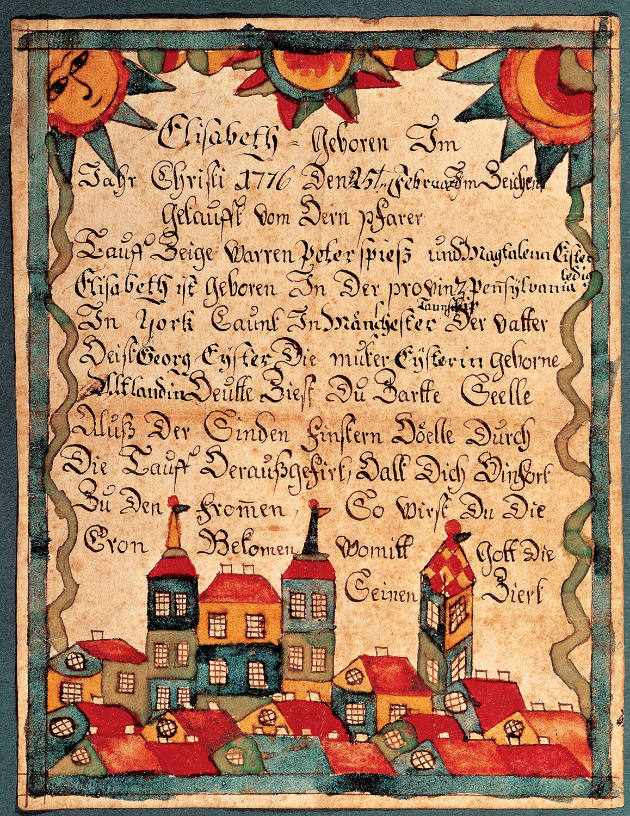 Elisabeth = geboren Im
Jahr Christi 1776 Den 25t Februar Im Zeichen
getaufft Vom Dern pfarer
Tauff Zeige Warren Peter spieß und Magtalena Eister
ledig
Elisabeth ist geboren In Der provintz Pensylvania
Taunschip
In York Caunt In Mänchester Der Vatter
Heist Georg Eyster Die muter Eysterin geborne
Heutte Biest Du Zartte Seelle
Auß Der Sinden finstern Höelle Durch
Die Tauff Heraußgefirt, Halt Dich Hinfort
Zu Den fromen, So Wirst Du Die
Cron Bekomen Womitt Gott Die
Seinen Ziert